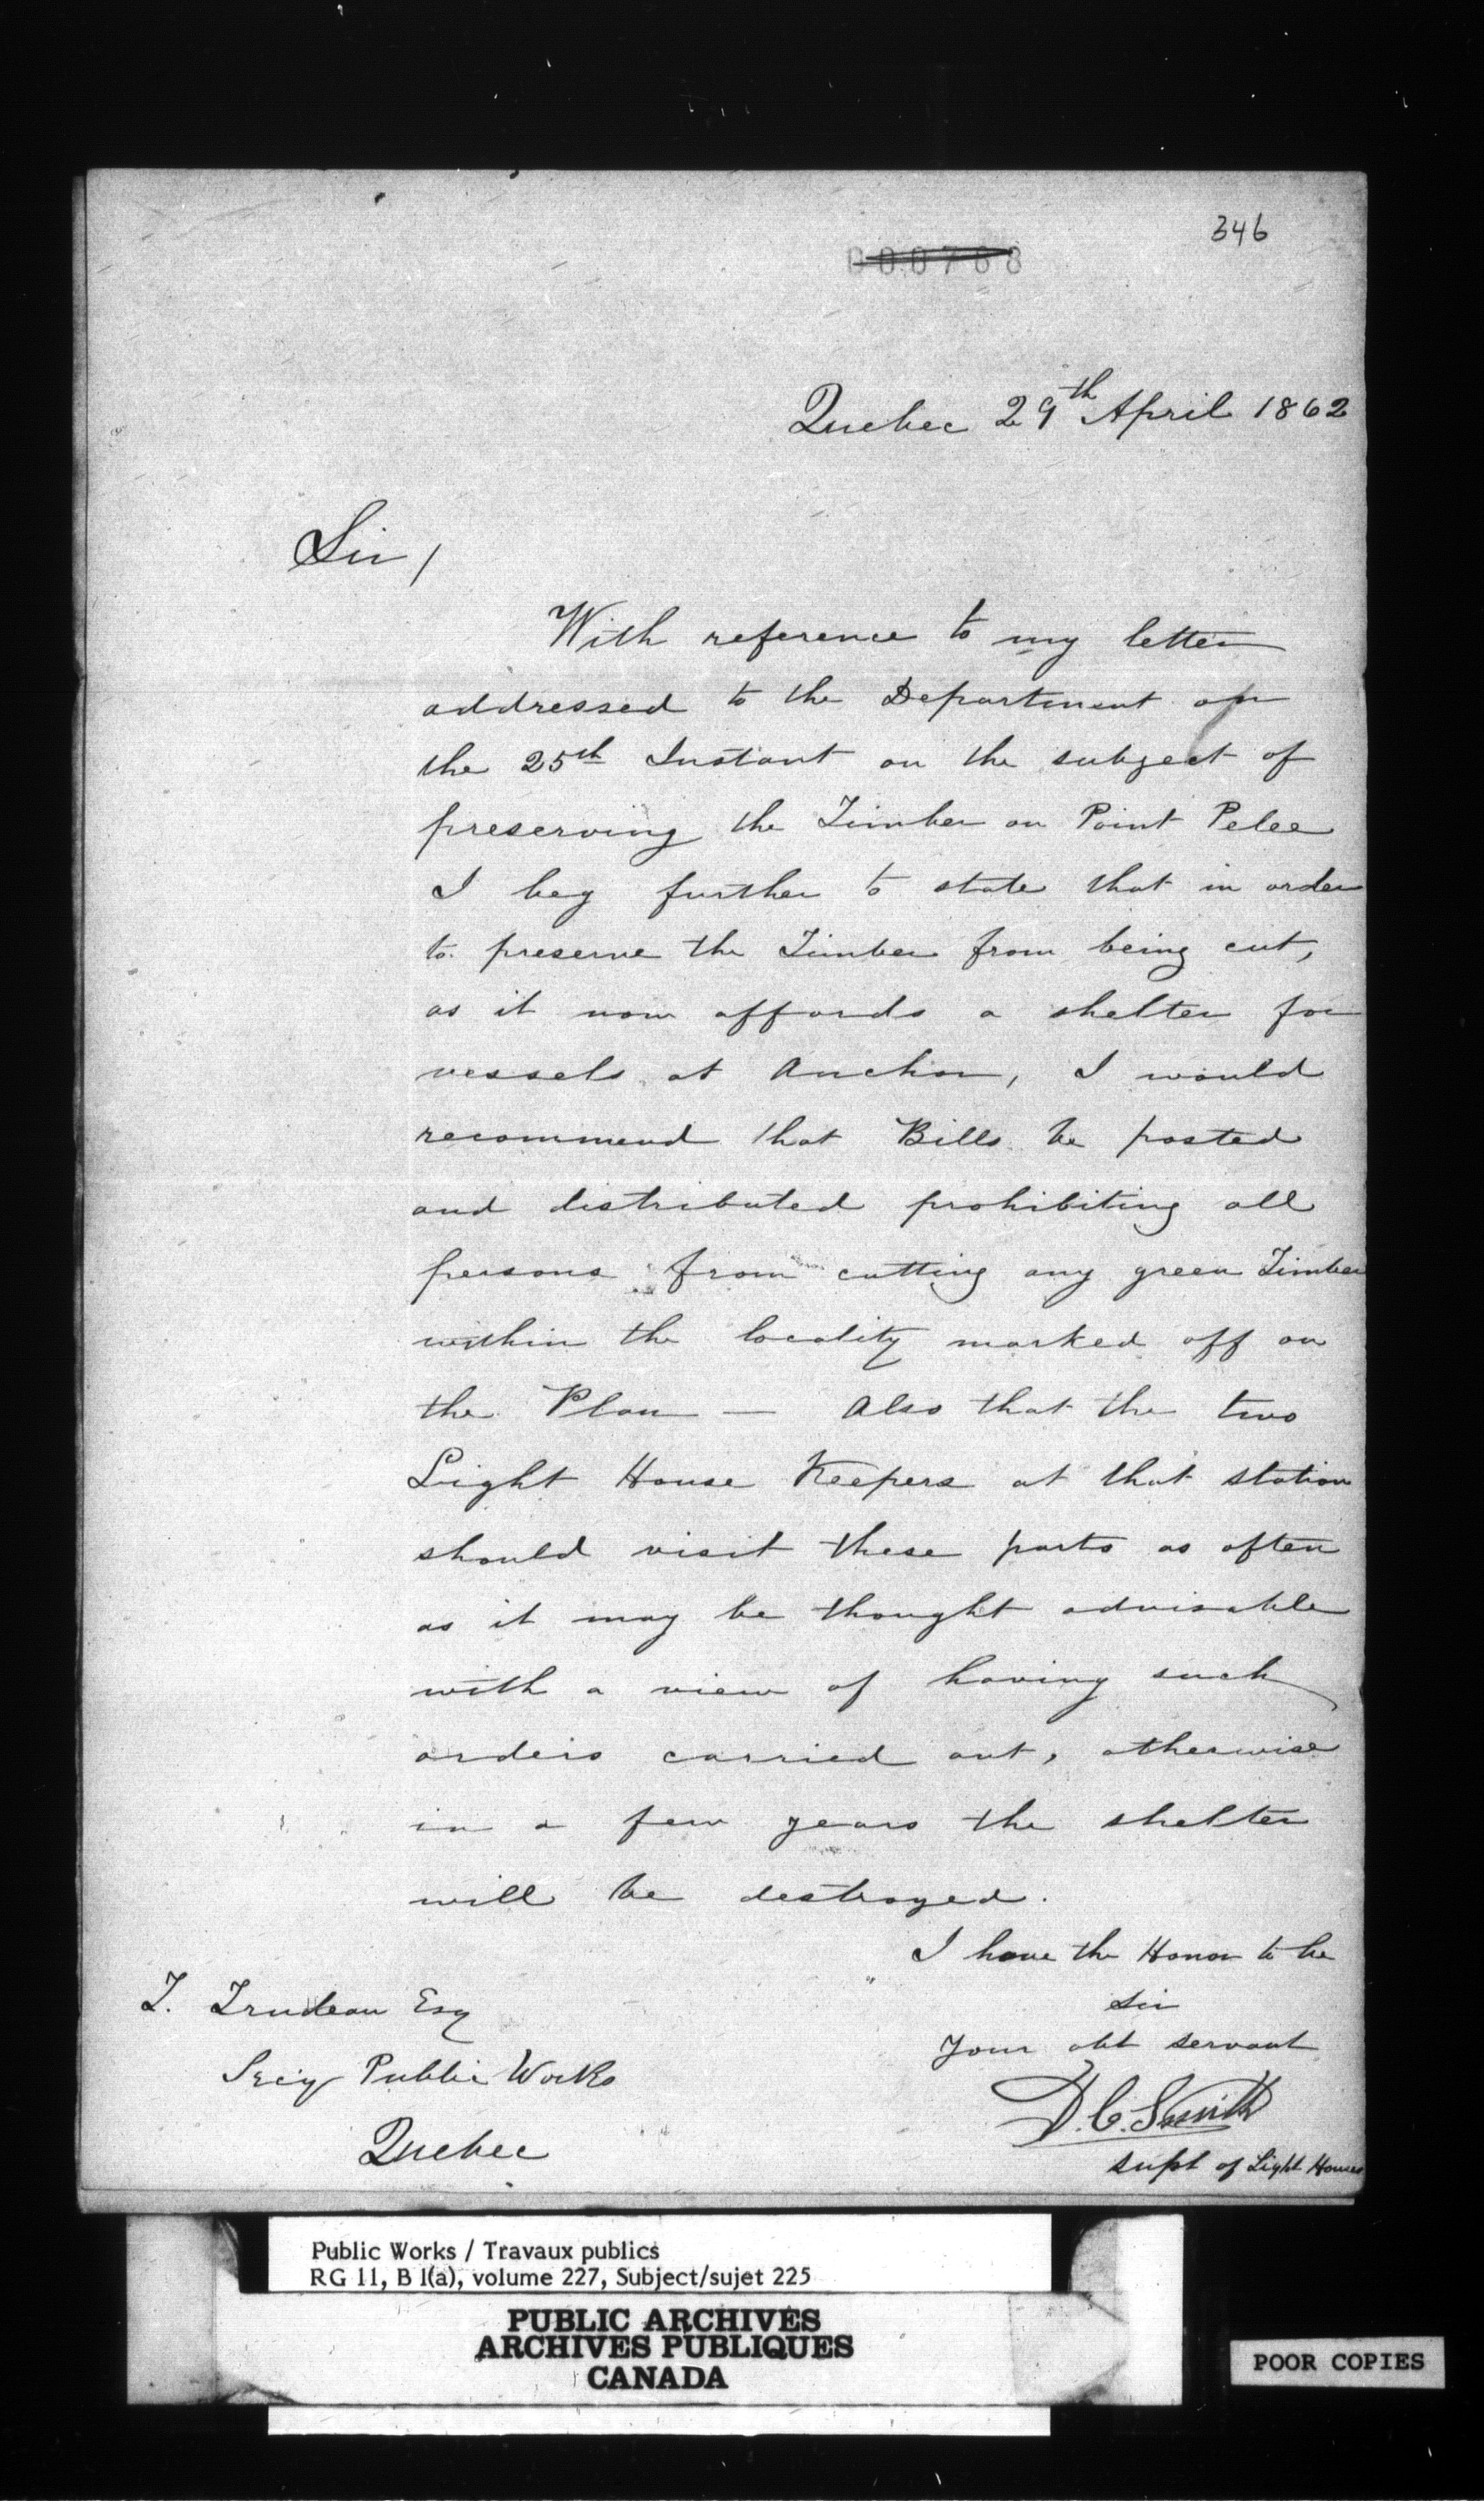 346
000768
Quebec 29th April 1862
Sir,
With reference to my letter
addressed to the Department on
the 25th Instant on the subject of
preserving the Timber on Point Pelee
I beg further to state that in order
to preserve the Timber from being cut,
as it now affords a shelter for
vessels at Anchor, I would
recommend that Bills be posted
and distributed prohibiting all
persons from cutting any green Timber
within the locality marked off on
the Plan — Also that the two
Light House Keepers at that station
should visit these parts as often
as it may be thought advisable
with a view of having such
orders carried out, otherwise
in a few years the shelter
will be destroyed.
I have the Honor to be
Sir
Your obt servant
D. C. Smith
Supt of Light Houses
T. Trudeau Esq
Secy Public Works
Quebec
Public Works / Travaux publics
RG 11, B 1(a), volume 227, Subject/sujet 225
PUBLIC ARCHIVES
ARCHIVES PUBLIQUES
CANADA
POOR COPIES